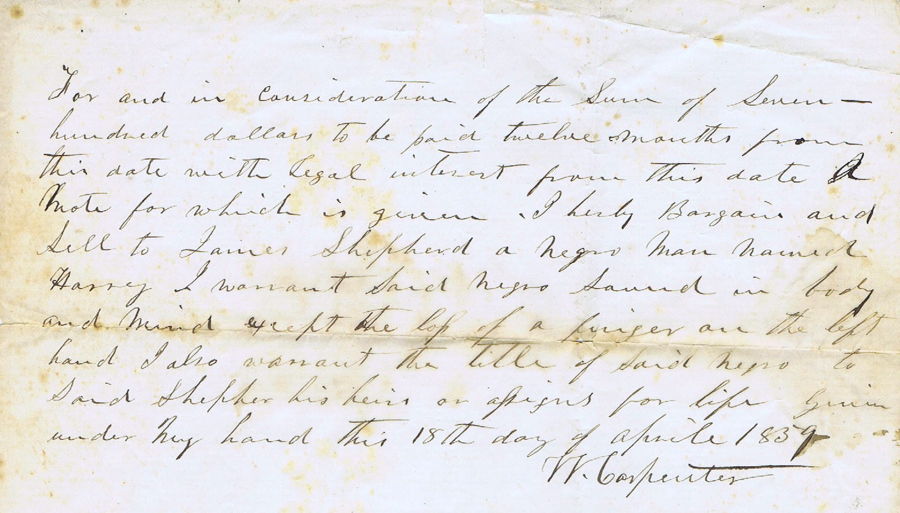 For and in Consideration of the Sum of Seven—
hundred dollars to be paid twelve months from
this date with Legal interest from this date A
Note for which is given. I herby Bargain and
Sell to James Shepherd a negro Man named
Harrey I warrant Said Negro Sound in body
and Mind except the loss of a finger on the left
hand I also warrant the title of Said Negro to
Said Shepher his heirs or assigns for life given
under My hand this 18th day of Aprile 1859
W. Carpenter